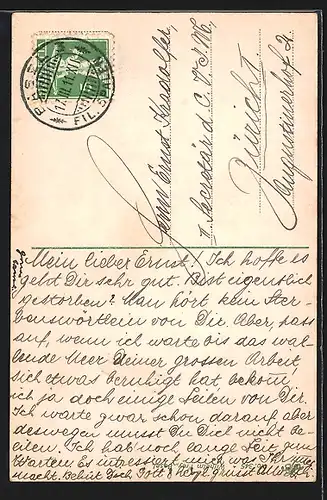 BASEL
FIL. 5
Herrn Ernst
II Secretär d. C.V.J.M.
Zürich I.
Augustinerhof 2.
Mein lieber Ernst! Ich hoffe es
geht Dir sehr gut. Bist eigentlich
gestorben? Man hört kein Ster-
benswörtlein von Dir. Aber, pass
auf, wenn ich warte bis das wal-
lende Meer Deiner grossen Arbeit
sich etwas beruhigt hat, bekom̄
ich ja doch einige Zeilen von Dir.
Ich warte zwar schon darauf, aber
deswegen musst Du Dich nicht be-
eilen. Ich hab noch lange Zeit zum
Warten. Es interessiert mich was Ihr
macht. Behüt Dich Gott! Hzgl. grüsst